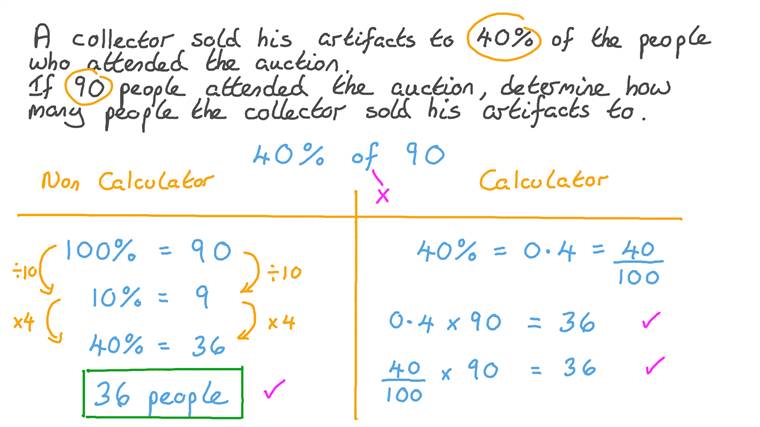 A collector sold his artifacts to 40% of the people
who attended the auction.
If 90 people attended the auction, determine how
many people the collector sold his artifacts to.
40% of 90
x
Non Calculator
Calculator
÷10
100% = 90
÷10
10% = 9
x4
x4
40% = 36
36 people ✓
40% = 0.4 = 40/100
0.4 x 90 = 36 ✓
40/100 x 90 = 36 ✓